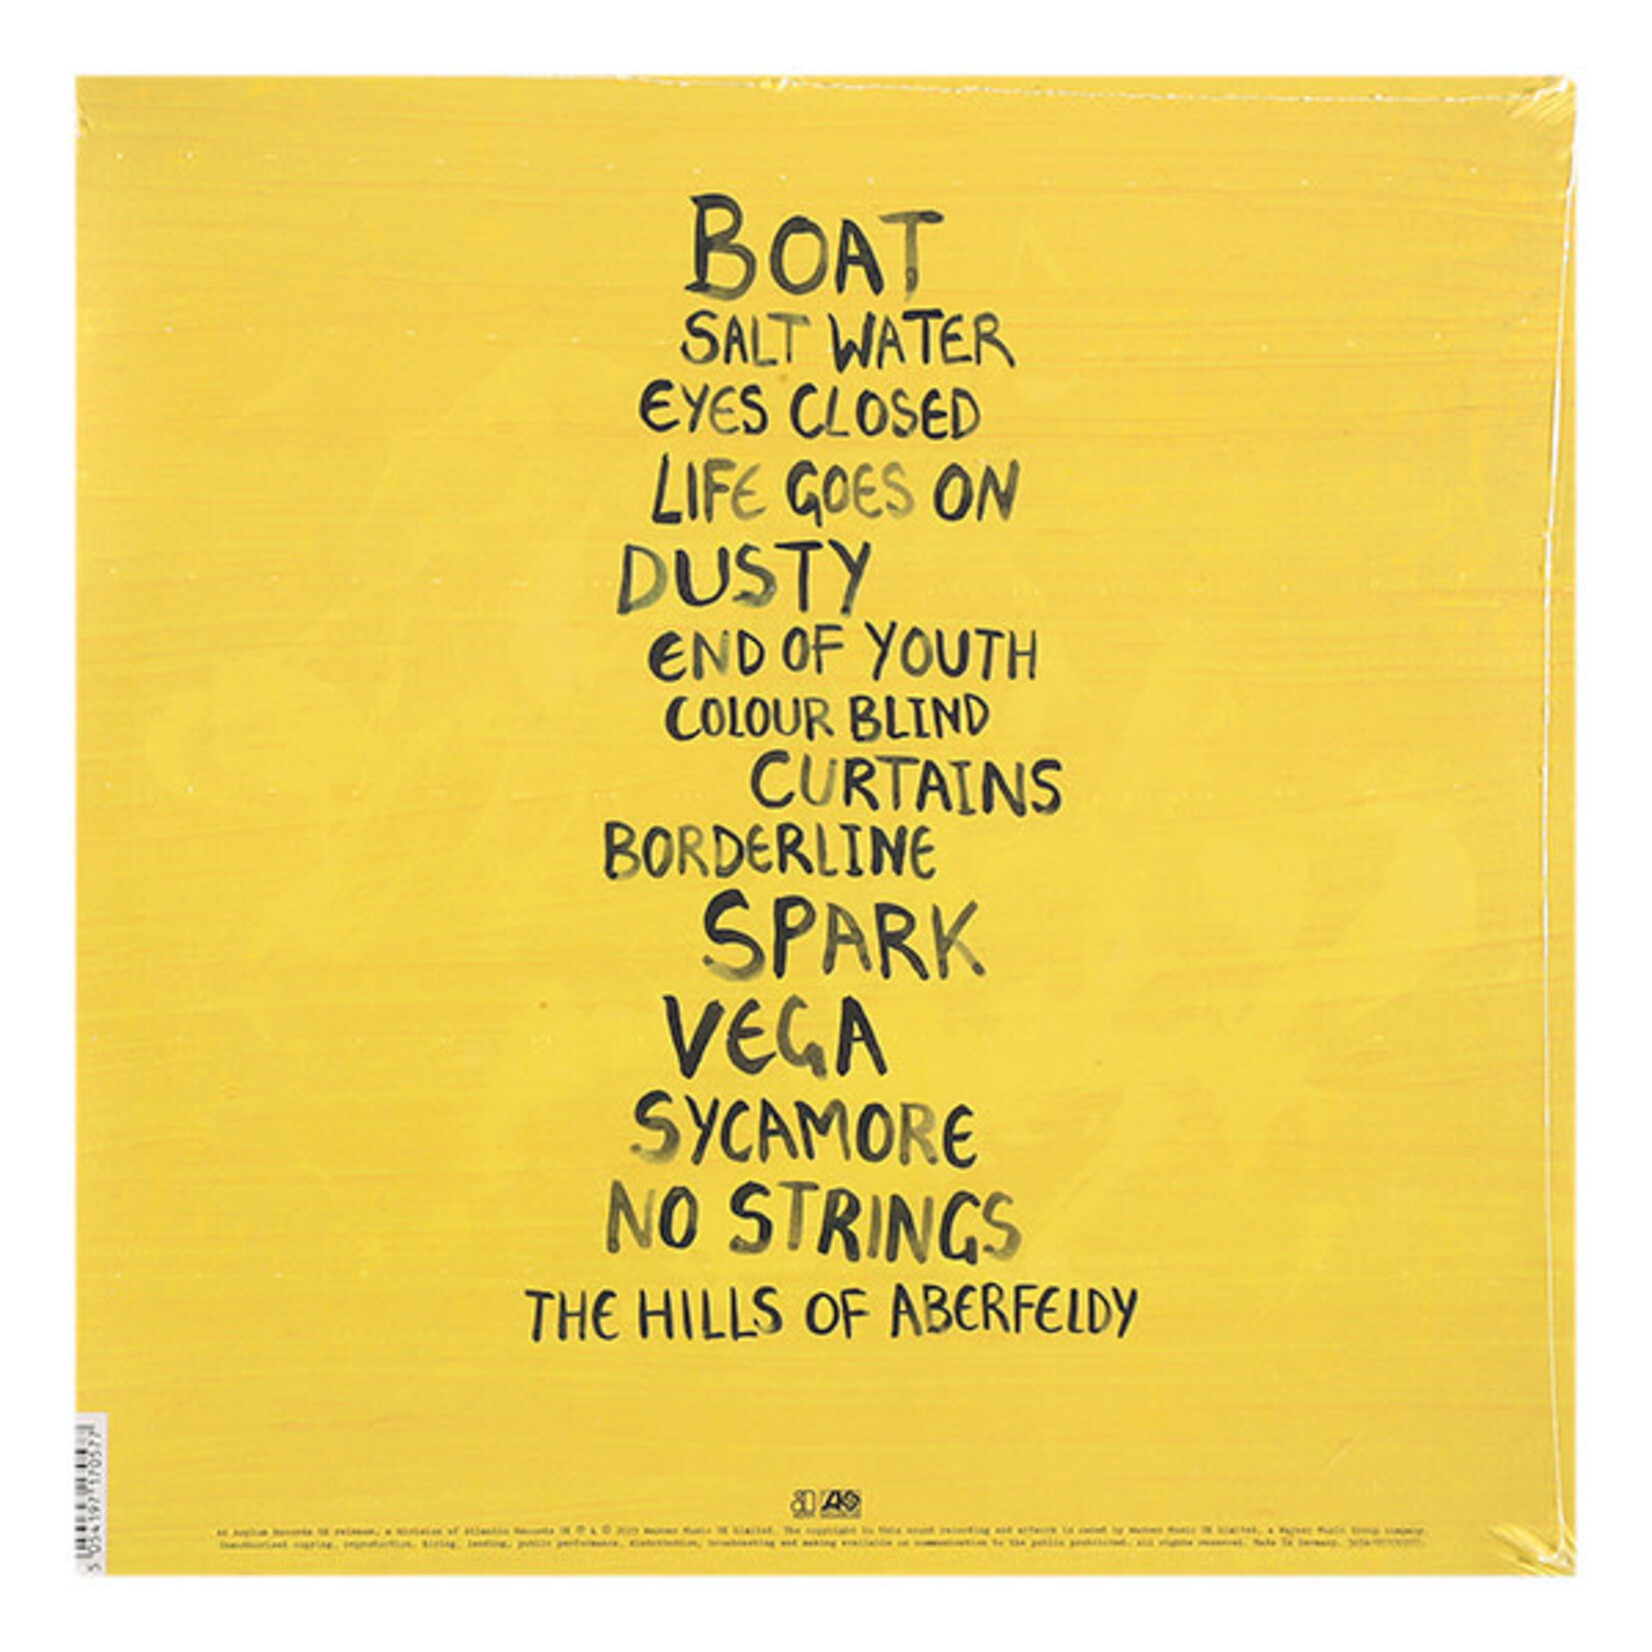 BOAT
SALT WATER
EYES CLOSED
LIFE GOES ON
DUSTY
END OF YOUTH
COLOUR BLIND
CURTAINS
BORDERLINE
SPARK
VEGA
SYCAMORE
NO STRINGS
THE HILLS OF ABERFELDY
5 054197 170577
An Asylum Records UK release, a division of Atlantic Records UK ℗ & © 2023 Warner Music UK Limited. The copyright in this sound recording and artwork is owned by Warner Music UK Limited, a Warner Music Group company.
Unauthorised copying, reproduction, hiring, lending, public performance, distribution, broadcasting and making available or communication to the public prohibited. All rights reserved. Made in Germany.